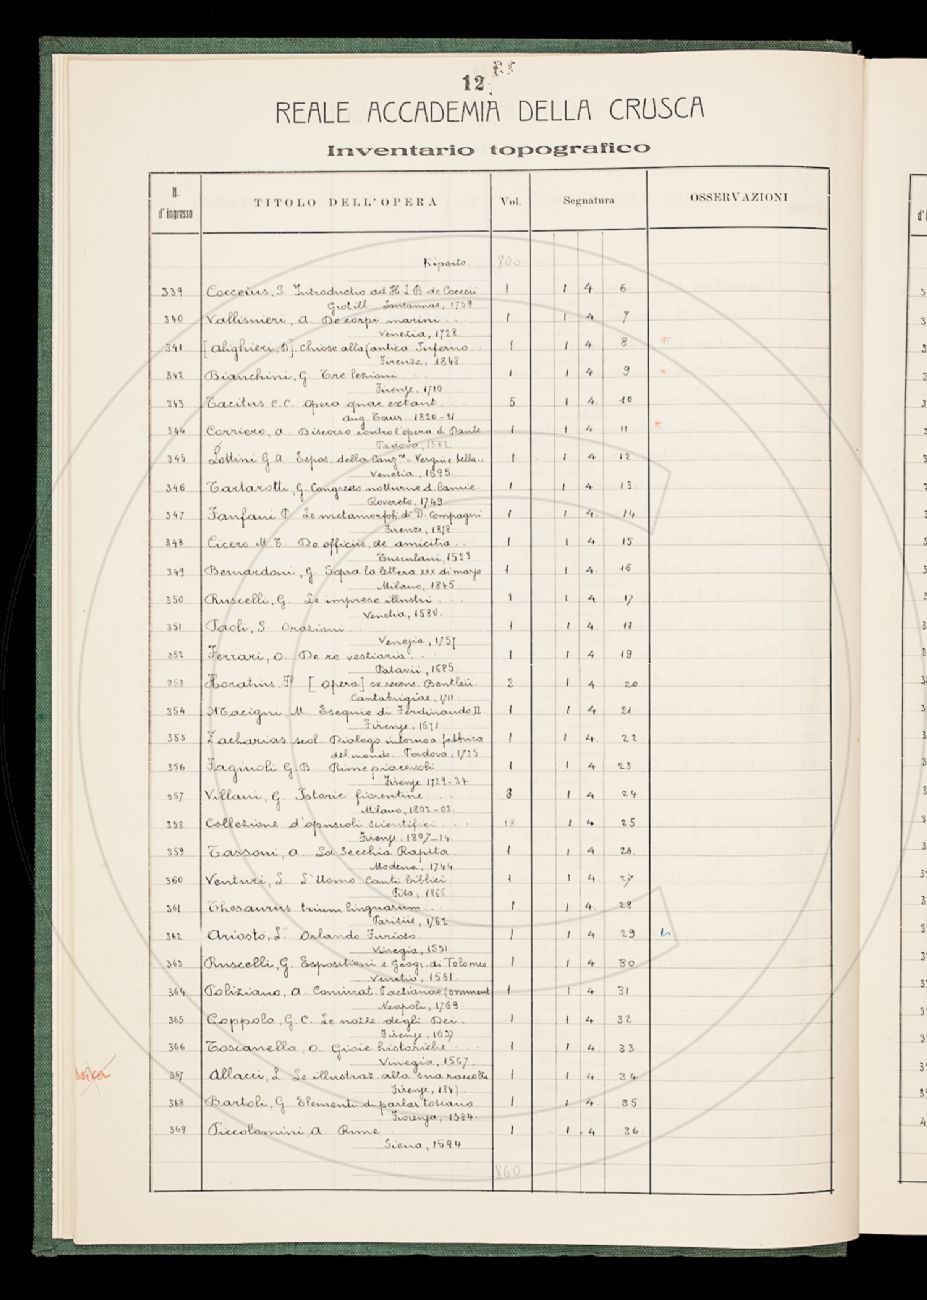 12
REALE ACCADEMIA DELLA CRUSCA
Inventario topografico
N. d'ingresso TITOLO DELL'OPERA Vol. Segnatura OSSERVAZIONI
Riporto 800
339 Cocceius, S. Introductio ad H. L. B. de Cocceii 1 1 4 6
Grot. ill. Lausannae, 1759
340 Vallisnieri, A. De corpi marini . . . 1 1 4 7
Venezia, 1728
341 [Alighieri, D]. Chiose alla Cantica Inferno . . 1 1 4 8
Firenze, 1848.
342 Bianchini, G. Tre lezioni . . . 1 1 4 9
Firenze, 1710
343 Tacitus C. C. Opera quae extant . . . 5 1 4 10
Aug. Taur. 1820-21
344 Carriero, A. Discorso contro l'opera di Dante 1 1 4 11
Padova, 1582.
345 Lottini G. A. Espos. della Canz.ne "Vergine bella" 1 1 4 12
Venetia, 1595.
346 Tartarotti, G. Congresso notturno d. Lamie. 1 1 4 13.
Rovereto, 1749
347 Fanfani P. Le metamorfosi di D. Compagni 1 1 4. 14
Firenze, 1878.
348 Cicero M. T. De officiis, de amicitia . . . 1 1 4 15
Tusculani, 1523
349 Bernardoni, G. Sopra la lettera XXX di marzo 1 1 4 16
Milano, 1845.
350 Ruscelli, G. Le imprese illustri . . . 1 1 4 17
Venetia, 1580.
351 Paoli, S. Orazioni 1 1 4. 18
Venezia, 1757
352 Ferrari, O. De re vestiaria . . . 1 1 4 19
Patavii, 1685
353 Horatius, Fl. [Opera] ex recens. Bentleii. 2 1 4 20
Cantabrigiae, 1711.
354 Macigni, M. Esequie di Ferdinando II 1 1 4 21
Firenze, 1671
355 Zacharias scol. Dialogo intorno a fabbrica 1 1 4. 22
del mondo. Padova, 1725
356 Fagiuoli G. B. Rime piacevoli 1 1 4 23
Firenze 1729-34
357 Villani, G. Istorie fiorentine . . . 8 1 4 24
Milano, 1802-03.
358 Collezione d'opuscoli scientifici . . . 18 1 4 25
Firenze, 1807-14.
359 Tassoni, A. La Secchia Rapita 1 1 4 26.
Modena, 1744
360 Venturi, L. L'Uomo Canti biblici 1 1 4. 27
Pisa, 1866.
361 Thesaurus trium linguarum . . 1 1 4. 28
Parisiis, 1762
362 Ariosto, L. Orlando Furioso. 1 1 4 29
Vinegia, 1551
363 Ruscelli, G. Espositioni s. Geogr. di Tolomeo 1 1 4 30
Venetia, 1561.
364 Poliziano, A. Coniurat. Pactianae Comment 1 1 4 31
Neapoli, 1769
365 Coppola, G. C. Le nozze degli Dei. 1 1 4 32
Firenze, 1637
366 Toscanella, O. Gioie historiche . . . 1 1 4. 33
Vinegia, 1567.
367 Allacci, L. Le illustraz. alla sua raccolta 1 1 4 34
Firenze, 1847.
368 Bartoli, G. Elementi di parlar toscano 1 1 4. 35
Fiorenza, 1584.
369 Piccolomini, A. Rime 1 1 4 36
Siena, 1594
860